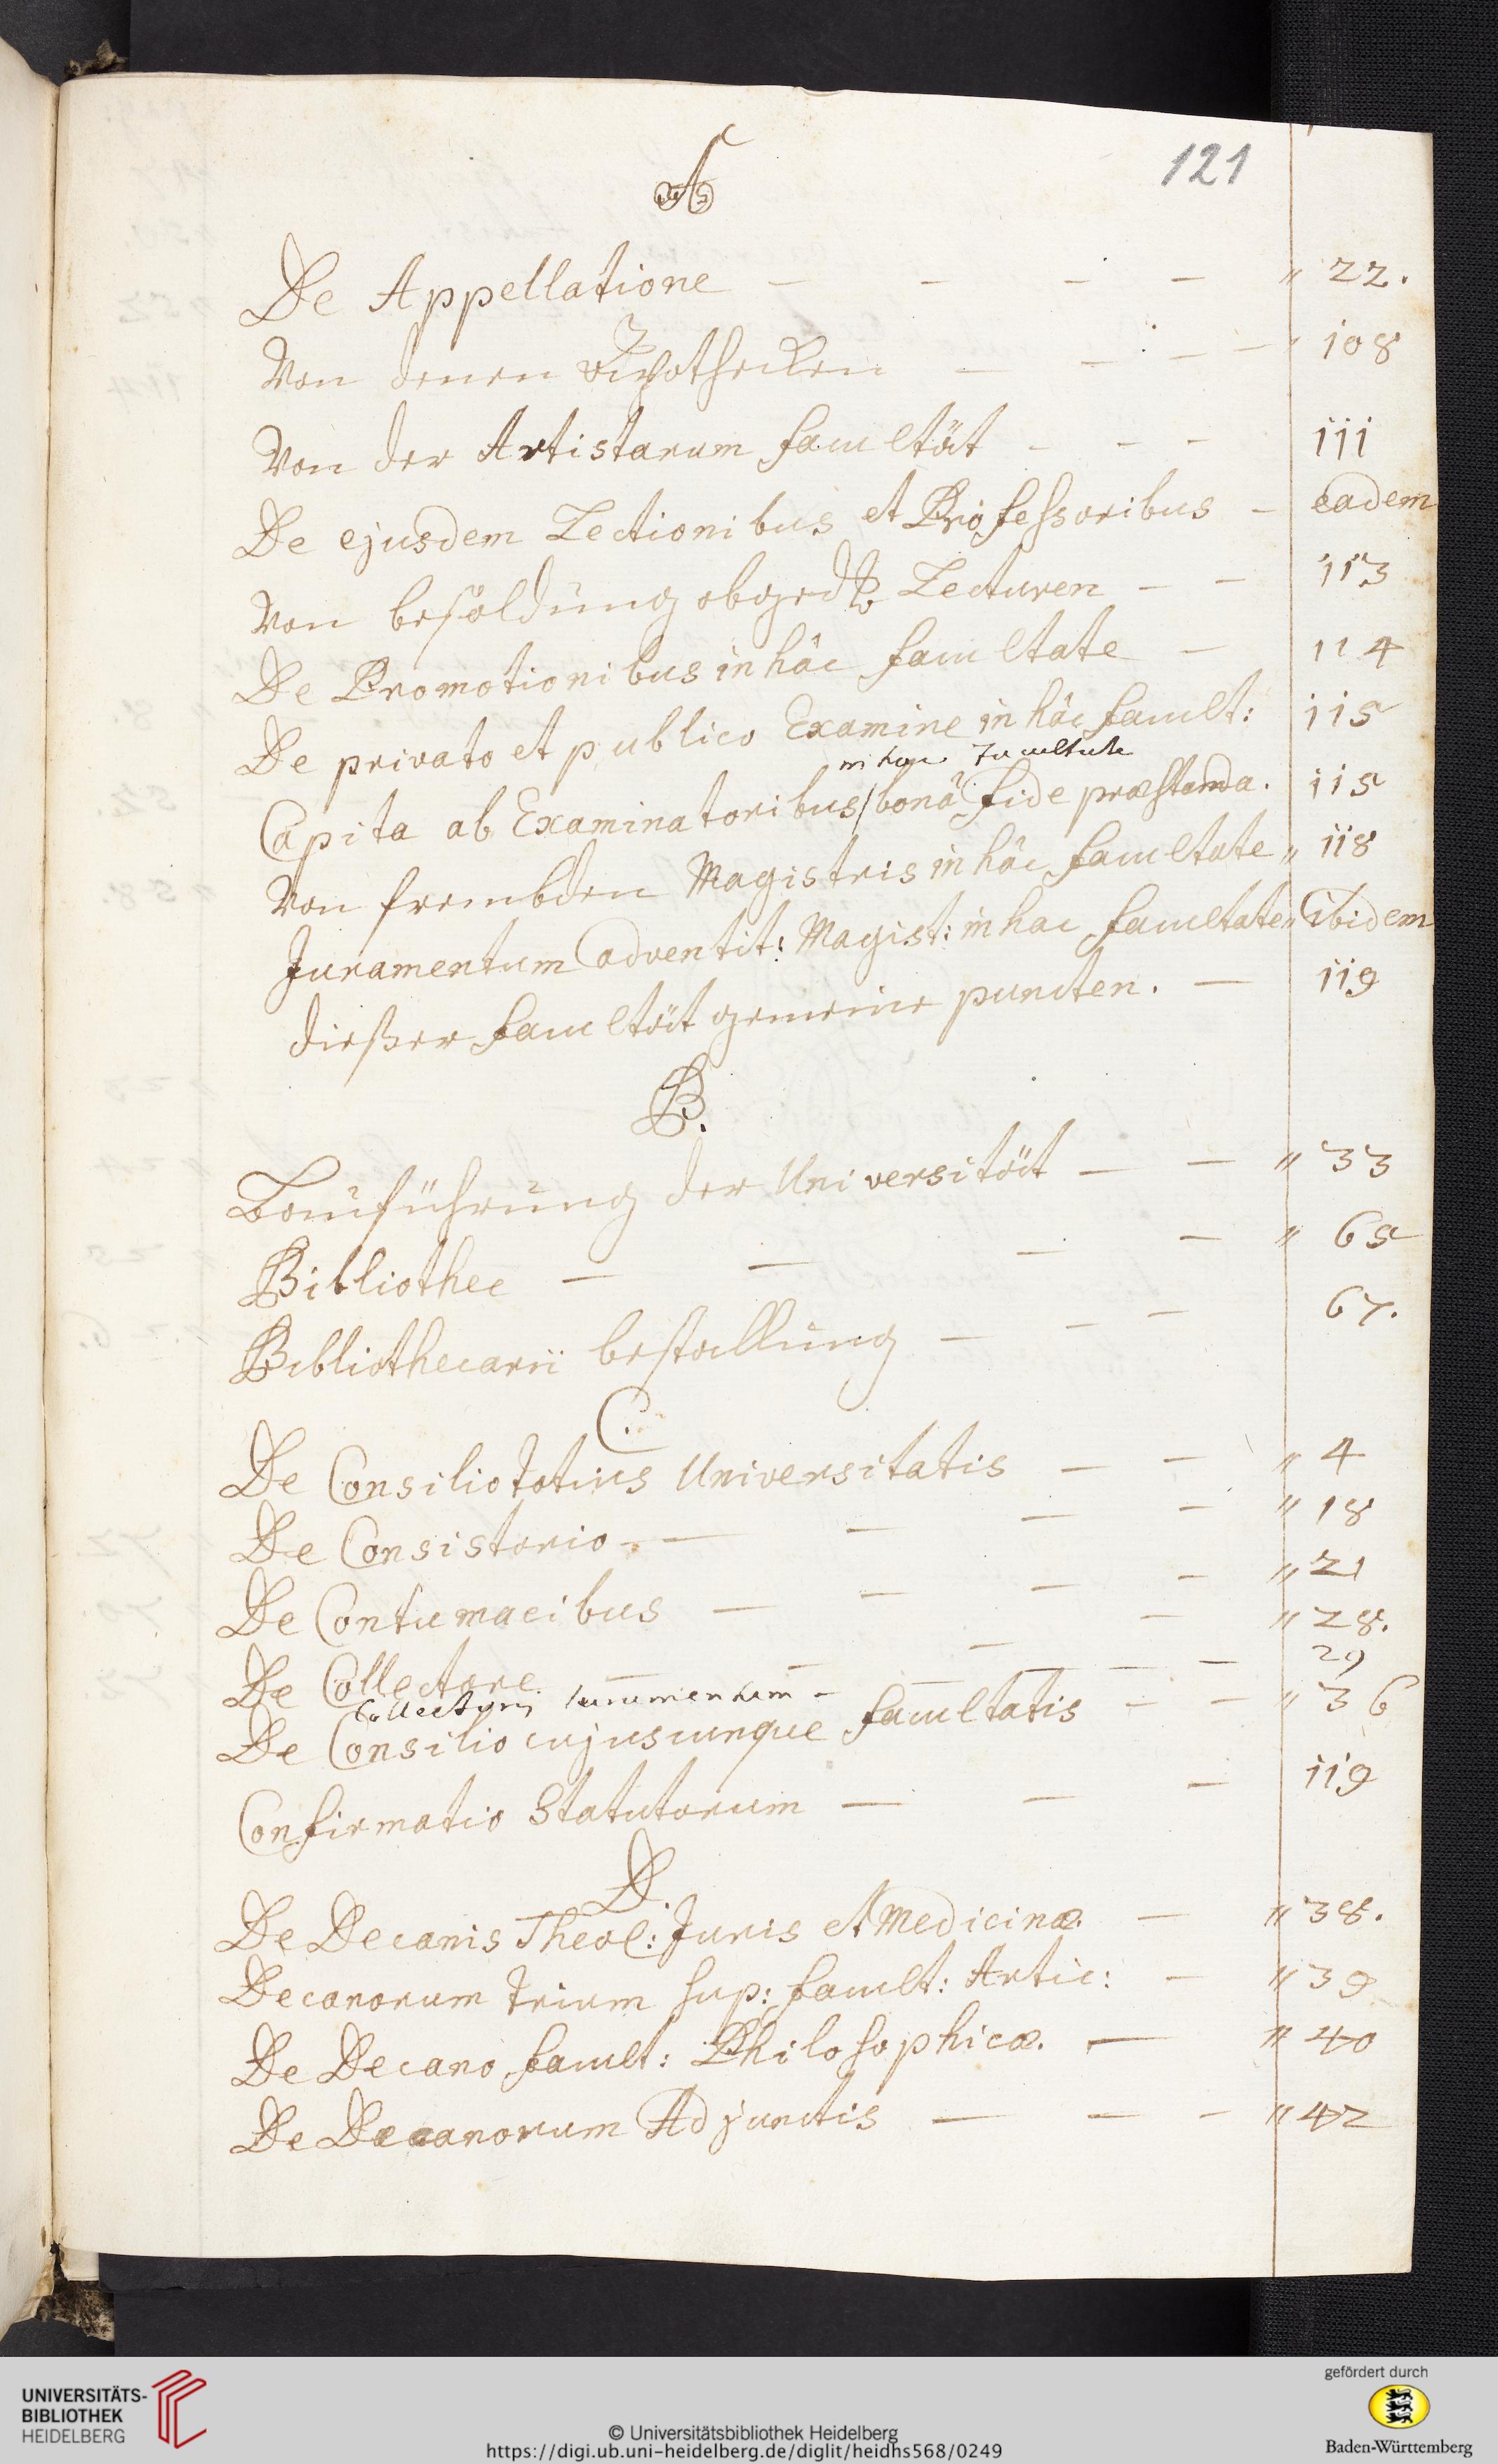 121
A
De Appellatione — — — — " 22.
Von denen Apothecken — — — — " 108
Von der Artistarum facultät — — — 111
De ejusdem Lectionibus et Professoribus — eadem
Von besoldung obgedtr Lecturen — — 113
De Promotionibus in hâc facultate — 114
De privato et publico Examine in hâc facult: 115
in hac Facultate
Capita ab Examinatoribus/bonâ fide præstanda. 115
Von frembden Magistris in hâc facultate " 118
Juramentum adventit: Magist: in hac facultate " Ibidem
dießer facultät gemeine puncten. — 119
B.
Bauführung der Universität — — " 33
Bibliothec — — — — " 65
Bibliothecarii bestallung — — — 67.
C.
De Consilio totius Universitatis — — " 4
De Consistorio — — — — " 18
De Contumacibus — — — — " 21
De Collectore — — — — " 28.
Collectoris Iuramentum — — — — 29
De Consilio cujuscunque facultatis — — " 36
Confirmatio Statutorum — — — 119
D.
De Decanis Theol: Juris et Medicinæ — " 38.
Decanorum trium sup: facult: Artic: — " 39
De Decano facult: Philosophicæ. — " 40
De Decanorum Adjunctis — — — " 42
UNIVERSITÄTS-
BIBLIOTHEK
HEIDELBERG
© Universitätsbibliothek Heidelberg
https://digi.ub.uni-heidelberg.de/diglit/heidhs568/0249
gefördert durch
Baden-Württemberg